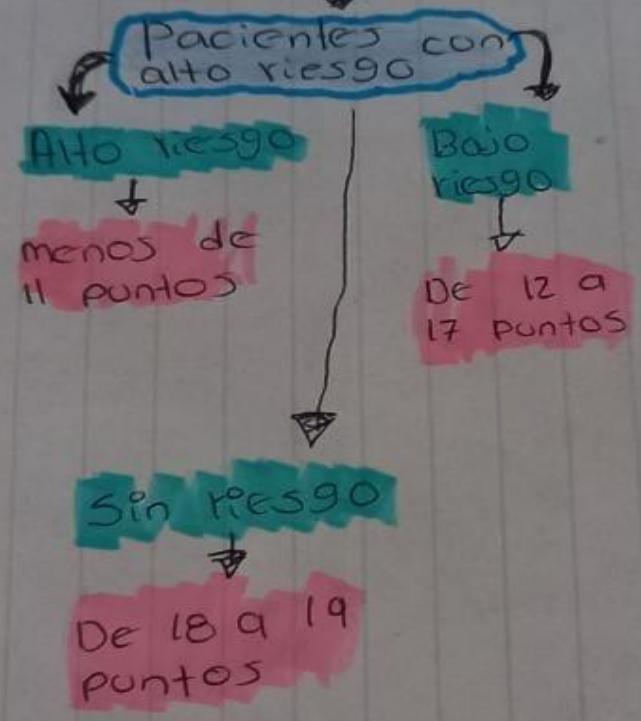 Pacientes con
alto riesgo
Alto riesgo
menos de
11 puntos
Bajo
riesgo
De 12 a
17 puntos
Sin riesgo
De 18 a 19
puntos